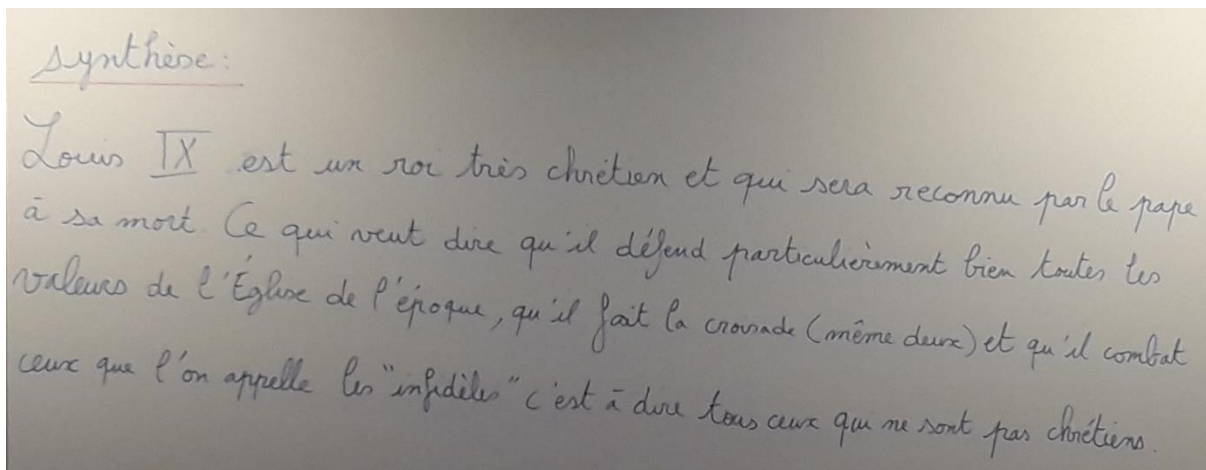 synthèse :
Louis IX est un roi très chrétien et qui sera reconnu par le pape
à sa mort. Ce qui veut dire qu'il défend particulièrement bien toutes les
valeurs de l'Église de l'époque, qu'il fait la croisade (même deux) et qu'il combat
ceux que l'on appelle les "infidèles" c'est à dire tous ceux qui ne sont pas chrétiens.